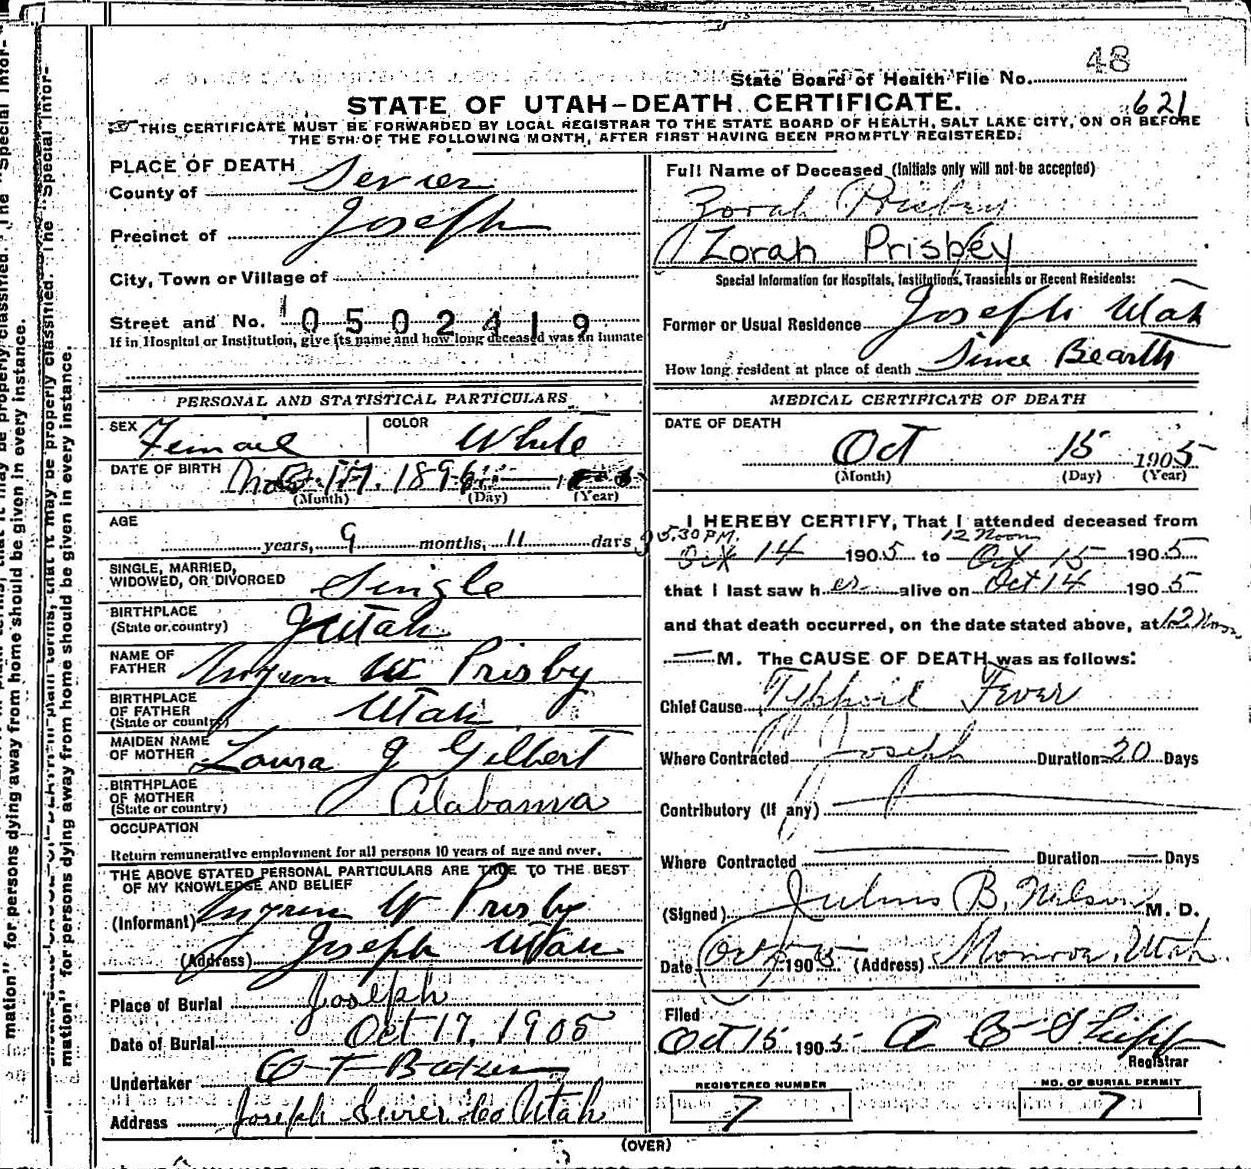 State Board of Health File No. 48
STATE OF UTAH-DEATH CERTIFICATE.
621
THIS CERTIFICATE MUST BE FORWARDED BY LOCAL REGISTRAR TO THE STATE BOARD OF HEALTH, SALT LAKE CITY, ON OR BEFORE
THE 5TH OF THE FOLLOWING MONTH, AFTER FIRST HAVING BEEN PROMPTLY REGISTERED.
PLACE OF DEATH
County of Sevier
Precinct of Joseph
City, Town or Village of
Street and No. 0502419
If in Hospital or Institution, give its name and how long deceased was an inmate
Full Name of Deceased (Initials only will not be accepted)
Zorah Prisbey
Zorah Prisbey
Special Information for Hospitals, Institutions, Transients or Recent Residents:
Former or Usual Residence Joseph Utah
How long resident at place of death Since Bearth
PERSONAL AND STATISTICAL PARTICULARS
SEX Femael
COLOR White
DATE OF BIRTH 17. 189
(Month) (Day) (Year)
AGE
years, 9 months, 11 days
SINGLE, MARRIED,
WIDOWED, OR DIVORCED Single
BIRTHPLACE
(State or country) Utah
NAME OF
FATHER W Prisby
BIRTHPLACE
OF FATHER
(State or country) Utah
MAIDEN NAME
OF MOTHER Laura J Gilbert
BIRTHPLACE
OF MOTHER
(State or country) Alabama
OCCUPATION
Return remunerative employment for all persons 10 years of age and over.
THE ABOVE STATED PERSONAL PARTICULARS ARE TRUE TO THE BEST
OF MY KNOWLEDGE AND BELIEF
(Informant) W Prisby
(Address) Joseph Utah
Place of Burial Joseph
Date of Burial Oct 17, 1905
Undertaker
Address Joseph Sevier Co Utah
MEDICAL CERTIFICATE OF DEATH
DATE OF DEATH
Oct 15 1905
(Month) (Day) (Year)
I HEREBY CERTIFY, That I attended deceased from
5.30 P.M. 12 Noon
Oct 14 1905 to Oct 15 1905
that I last saw her alive on Oct 14 1905
and that death occurred, on the date stated above, at 12 Noon
M. The CAUSE OF DEATH was as follows:
Chief Cause Typhoid Fever
Where Contracted Joseph Duration 20 Days
Contributory (If any)
Where Contracted Duration Days
(Signed) Julius B. Nelson M. D.
Date Oct 1905 (Address) Monroe, Utah.
Filed
Oct 15 1905 A
Registrar
REGISTERED NUMBER
7
NO. OF BURIAL PERMIT
7
(OVER)